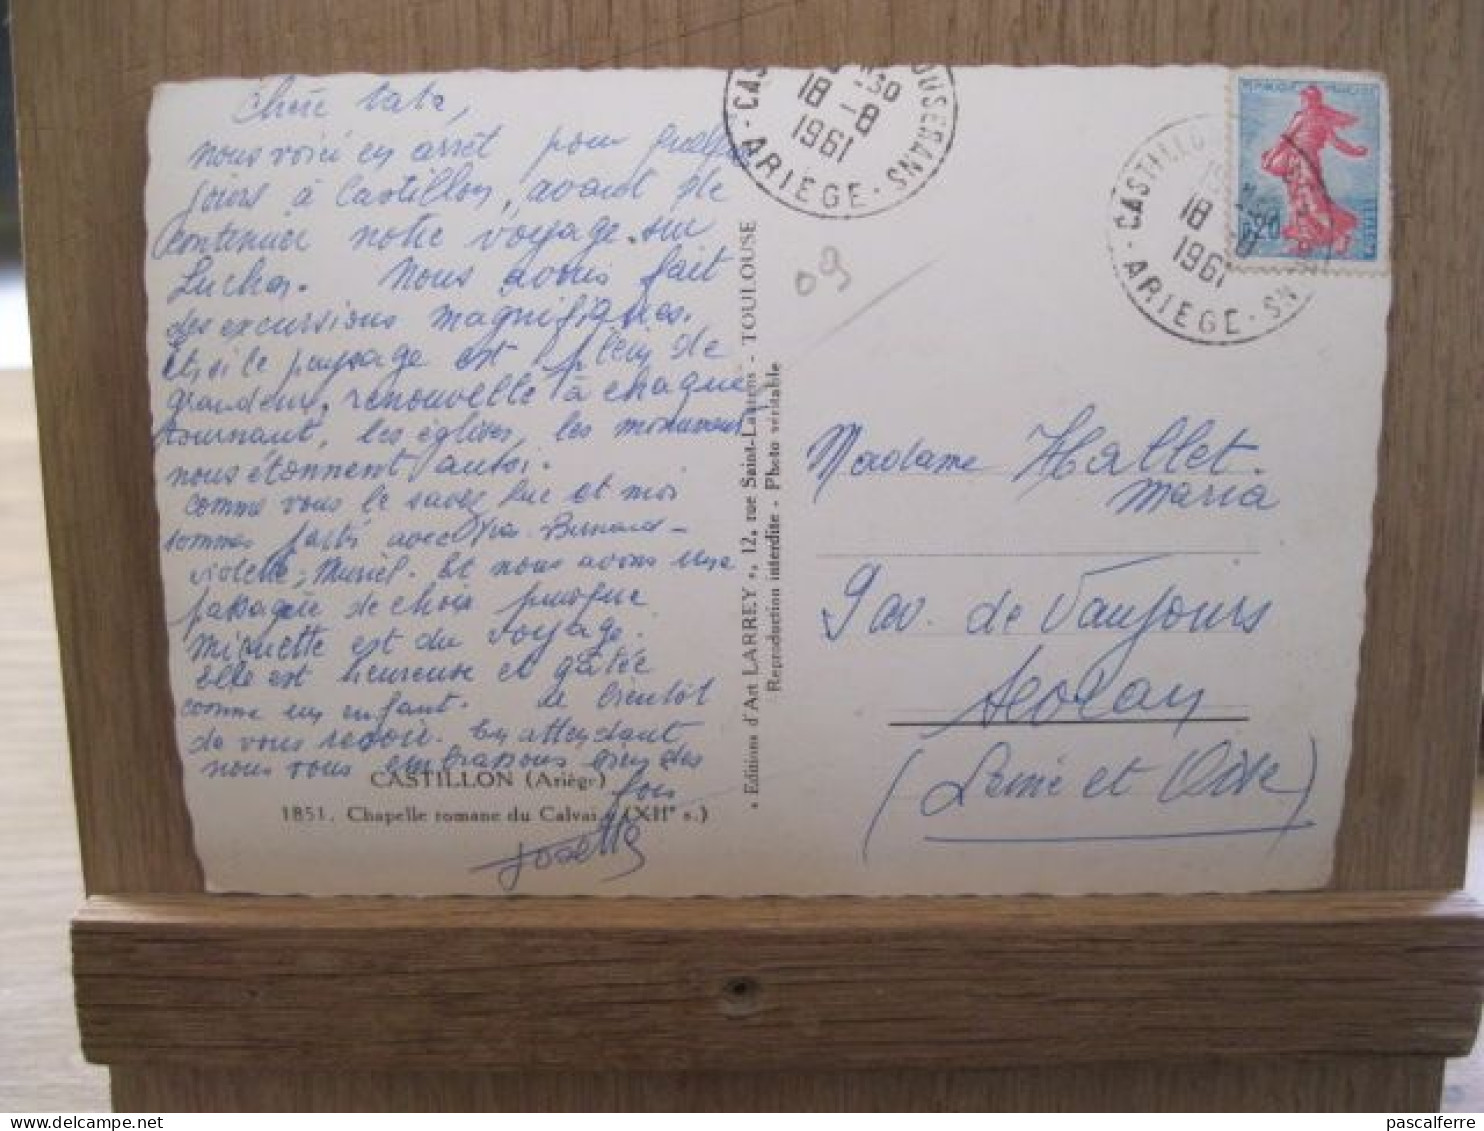 Chère tata,
nous voici en arrêt pour quelques
jours à Castillon, avant de
continuer notre voyage sur
Luchon. Nous avons fait
des excursions magnifiques.
Et si le paysage est plein de
grandeur, renouvelle à chaque
tournant, les églises, les monuments
nous étonnent aussi.
comme vous le savez Luc et moi
sommes partis avec Bernard -
violette, Muriel. Et nous avons une
passagère de choix puisque
Miquette est du voyage.
Elle est heureuse et gâtée
comme un enfant. A bientôt
de vous revoir. En attendant
nous vous embrassons bien des
fois
Josette
CASTILLON (Ariège)
1851. Chapelle romane du Calvaire (XIIe s.)
« Editions d'Art LARREY », 12, rue Saint-Laurens - TOULOUSE
Reproduction interdite - Photo véritable
18 -8
1961
ARIEGE
09
CASTILLON
18 -8
1961
ARIEGE
REPUBLIQUE FRANÇAISE
0,20
Madame Hallet
Maria
9 av. de Vaujours
(Seine et Oise)
pascalferre